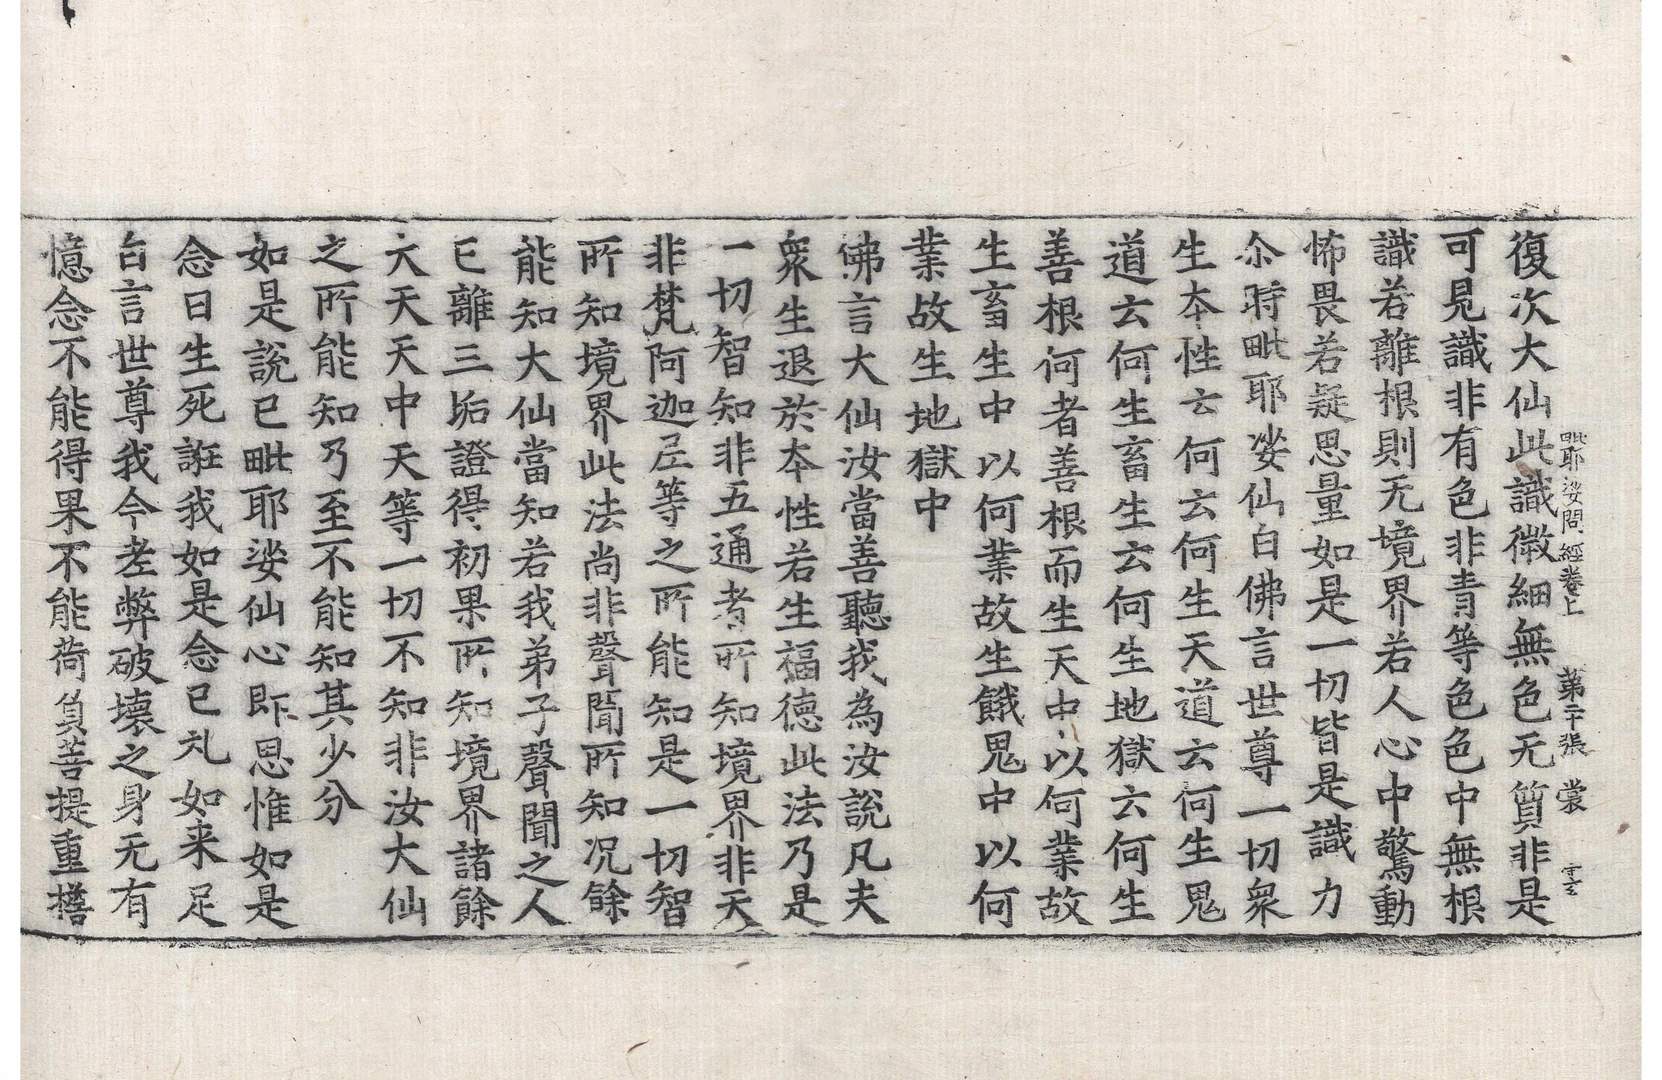 復次大仙此識微細無色无質非是
毗耶娑問經卷上　第二十張　裳
可見識非有色非青等色色中無根
識若離根則无境界若人心中驚動
怖畏若疑思量如是一切皆是識力
尒時毗耶娑仙白佛言世尊一切衆
生本性云何云何生天道云何生鬼
道云何生畜生云何生地獄云何生
善根何者善根而生天中以何業故
生畜生中以何業故生餓鬼中以何
業故生地獄中
佛言大仙汝當善聽我為汝說凡夫
衆生退於本性若生福德此法乃是
一切智知非五通者所知境界非天
非梵阿迦尼等之所能知是一切智
所知境界此法尚非聲聞所知况餘
能知大仙當知若我弟子聲聞之人
已離三垢證得初果所知境界諸餘
六天天中天等一切不知非汝大仙
之所能知乃至不能知其少分
如是說已毗耶娑仙心即思惟如是
念曰生死誑我如是念已礼如来足
白言世尊我今老弊破壞之身无有
憶念不能得果不能荷負菩提重擔